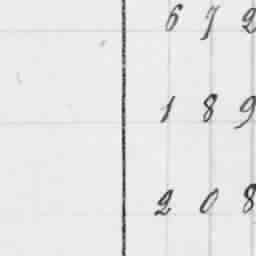 6 7 2
1 8 9
2 0 8